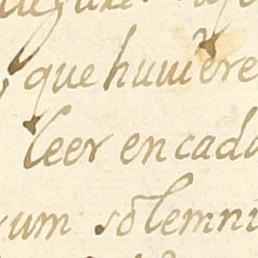 que huuiere
leer en cada
rum sõlemni